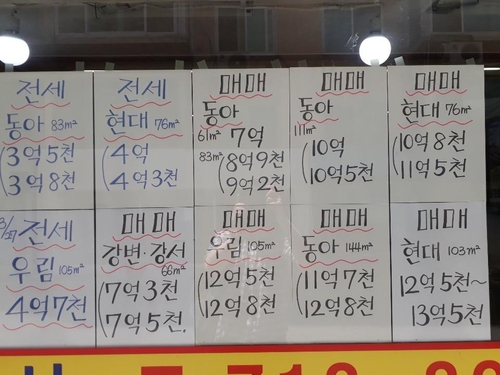 전세
동아 83㎡
(3억 5천
(3억 8천
전세
현대 76㎡
(4억
(4억 3천
매매
동아
61㎡ 7억
83㎡ (8억 9천
(9억 2천
매매
동아
111㎡
(10억
(10억 5천
매매
현대 76㎡
(10억 8천
(11억 5천
전세
우림 105㎡
4억 7천
매매
강변·강서
68㎡
(7억 3천
(7억 5천.
매매
우림 105㎡
(12억 5천
(12억 8천
매매
동아 144㎡
(11억 7천
(12억 8천
매매
현대 103㎡
12억 5천~
13억 5천